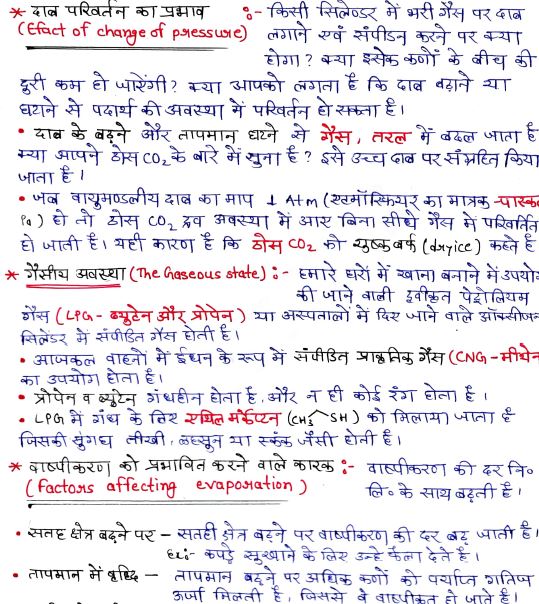 * दाब परिवर्तन का प्रभाव :- किसी सिलेण्डर में भरी गैस पर दाब
(Efact of change of pressure) लगाने एवं संपीडन करने पर क्या
होगा? क्या इसके कणों के बीच की
दुरी कम हो जाएंगी? क्या आपको लगता है कि दाब बढ़ाने या
घटाने से पदार्थ की अवस्था में परिवर्तन हो सकता है।
• दाब के बढ़ने और तापमान घटने से गैस, तरल में बदल जाता है
क्या आपने ठोस CO2 के बारे में सुना है? इसे उच्च दाब पर संग्रहित किया
जाता है।
• जब वायुमण्डलीय दाब का माप 1 Atm (एटमॉस्फियर का मात्रक-पास्कल
Pa) हो तो ठोस CO2 द्रव अवस्था में आए बिना सीधे गैस में परिवर्तित
हो जाती है। यही कारण है कि ठोस CO2 को शुष्क बर्फ (dryice) कहते है
* गैसीय अवस्था (The Gaseous state) :- हमारे घरों में खाना बनाने में उपयोग
की जाने वाली द्रवीकृत पेट्रोलियम
गैस (LPG - ब्युटेन और प्रोपेन) या अस्पतालों में दिए जाने वाले ऑक्सीजन
सिलेंडर में संपीडित गैस होती है।
• आजकल वाहनों में ईंधन के रूप में संपीडित प्राकृतिक गैस (CNG - मीथेन
का उपयोग होता है।
• प्रोपेन व ब्युटेन गंधहीन होता है, और न ही कोई रंग होता है।
• LPG में गंध के लिए एथिल मर्केप्टन (CH3 SH) को मिलाया जाता है
जिसकी सुंगध तीखी, लहसुन या स्कंक जैसी होती है।
* वाष्पीकरण को प्रभावित करने वाले कारक :- वाष्पीकरण की दर नि॰
(factors affecting evaporation) लि॰ के साथ बढ़ती है।
• सतह क्षेत्र बढ़ने पर - सतही क्षेत्र बढ़ने पर वाष्पीकरण की दर बढ़ जाती है।
Ex:- कपड़े सुखाने के लिए उन्हे फैला देते है।
• तापमान में वृध्दि - तापमान बढ़ने पर अधिक कणों को पर्याप्त गतिज
ऊर्जा मिलती है, जिससे वे वाष्पीकृत हो जाते है।